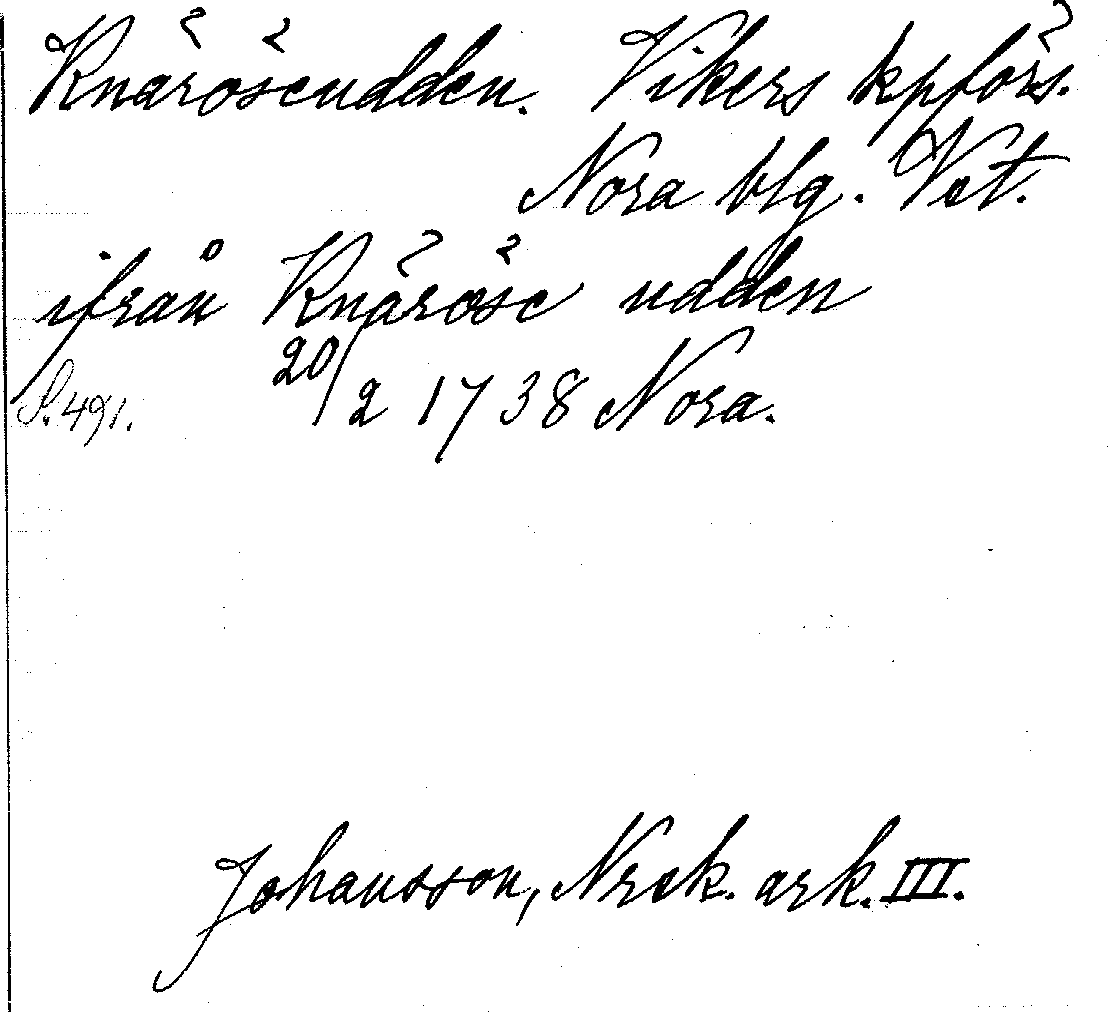 Knärösenudden. Vikers kpförs.
Nora blg. Vet.
ifrån Knäröse udden
20/2 1738 Nora.
S. 491.
Johansson, Nrck. ark. III.